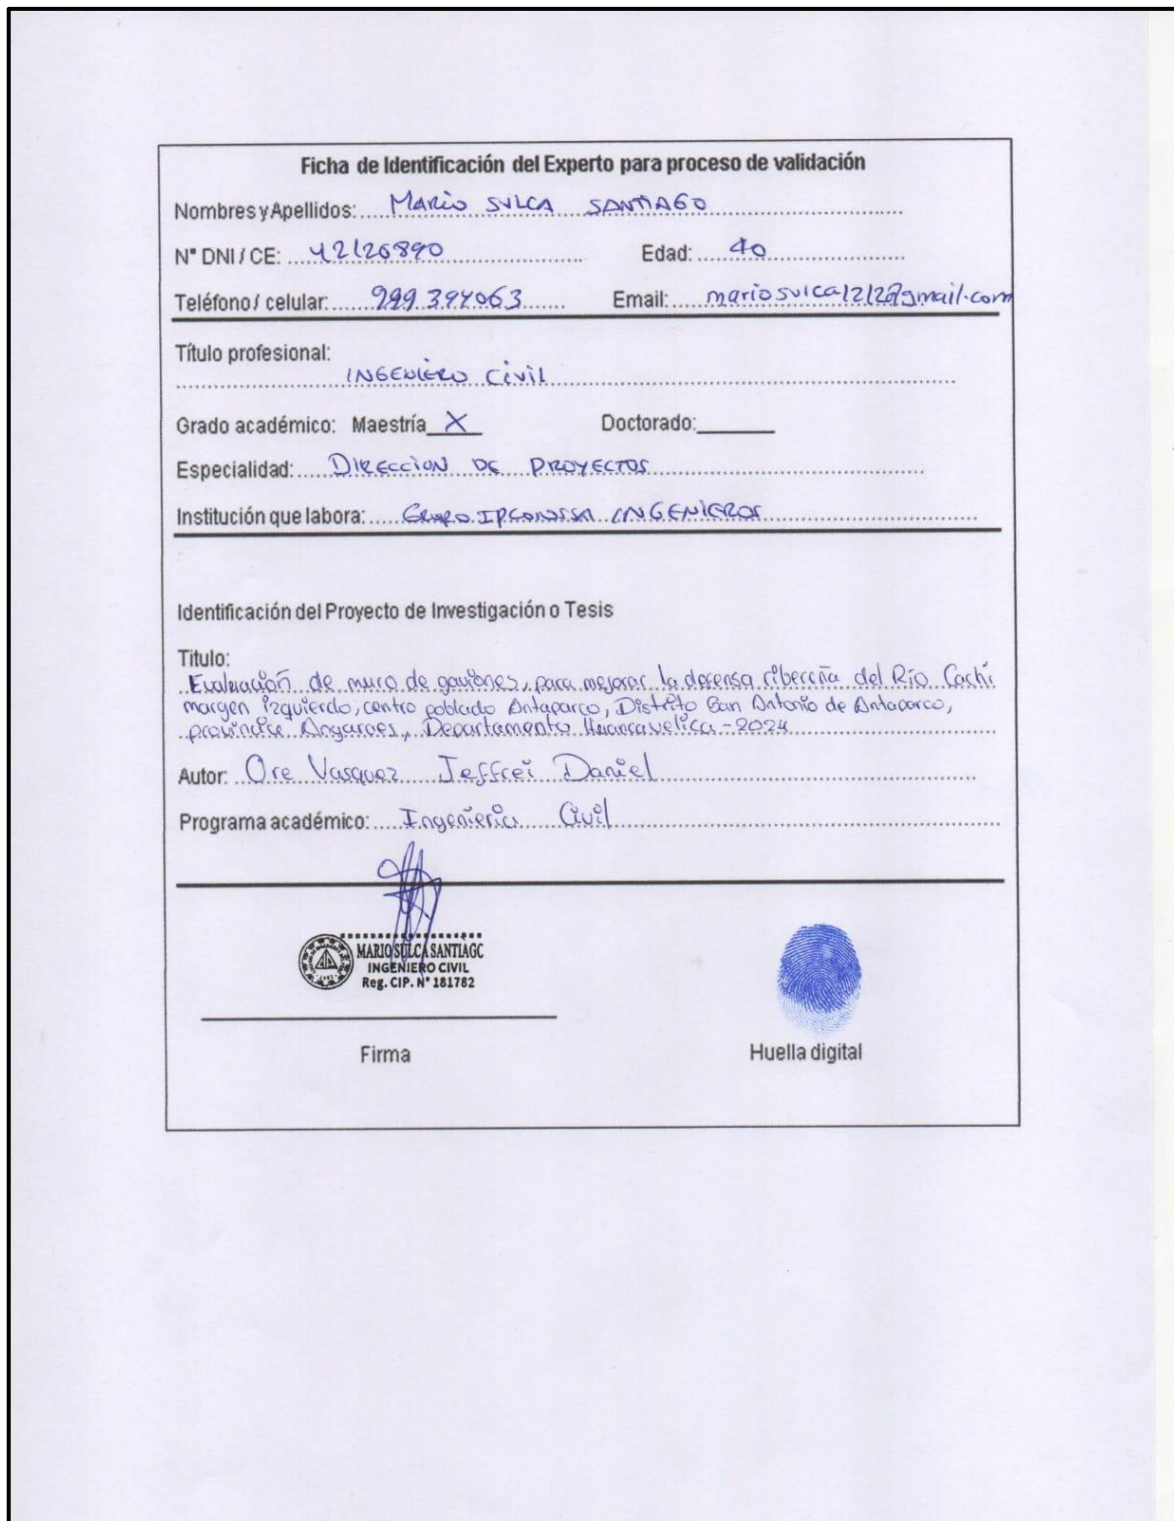 Ficha de Identificación del Experto para proceso de validación
Nombres y Apellidos: MARIO SULCA SANTIAGO
N° DNI / CE: 42126890 Edad: 40
Teléfono / celular: 999 394063 Email: mariosulca1212@gmail.com
Título profesional:
INGENIERO CIVIL
Grado académico: Maestría X Doctorado:
Especialidad: DIRECCION DE PROYECTOS
Institución que labora: GRUPO INGENIEROS
Identificación del Proyecto de Investigación o Tesis
Titulo:
Evaluación de muro de gaviones, para mejorar la defensa ribereña del Río Cachi
margen izquierdo, centro poblado Antaparco, Distrito San Antonio de Antaparco,
provincia Angaraes, Departamento Huancavelica - 2024
Autor: Ore Vasquez Jeffrei Daniel
Programa académico: Ingenieria Civil
MARIO SULCA SANTIAGO
INGENIERO CIVIL
Reg. CIP. N° 181782
Firma Huella digital